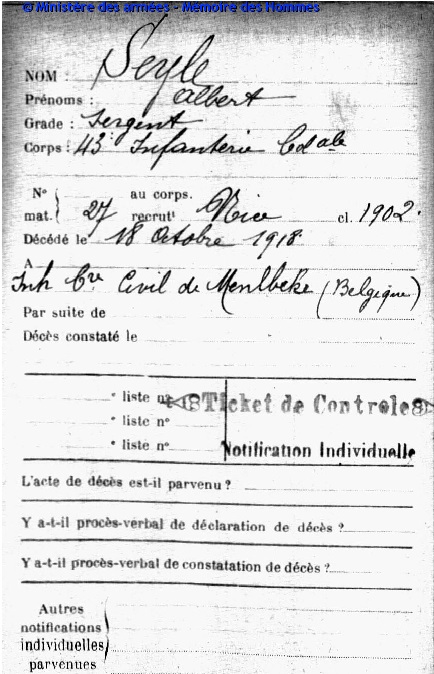 © Ministère des armées - Mémoire des Hommes
NOM : Seyle
Prénoms : Albert
Grade : Sergent
Corps : 43e Infanterie Cdale
No mat. { 27 au corps. recrutt Nice cl. 1902.
Décédé le 18 Octobre 1918
A
Inh Cre Civil de Menlbeke (Belgique)
Par suite de
Décès constaté le
" liste no
" liste no
" liste no
Ticket de Controle
Notification Individuelle
L'acte de décès est-il parvenu ?
Y a-t-il procès-verbal de déclaration de décès ?
Y a-t-il procès-verbal de constatation de décès ?
Autres
notifications
individuelles
parvenues